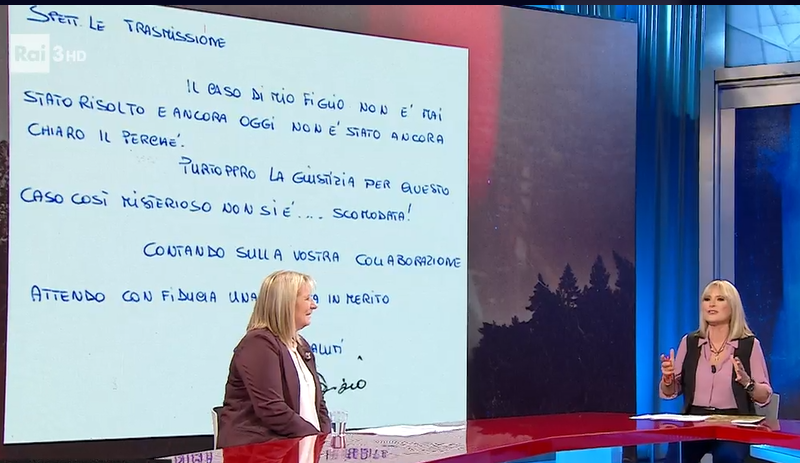 Rai 3HD
SPETT. LE TRASMISSIONE
IL CASO DI MIO FIGLIO NON E' MAI
STATO RISOLTO E ANCORA OGGI NON E' STATO ANCORA
CHIARO IL PERCHE'.
PURTOPPRO LA GIUSTIZIA PER QUESTO
CASO COSÌ MISTERIOSO NON SI E'.... SCOMODATA!
CONTANDO SULLA VOSTRA COLLABORAZIONE
ATTENDO CON FIDUCIA UNA IN MERITO